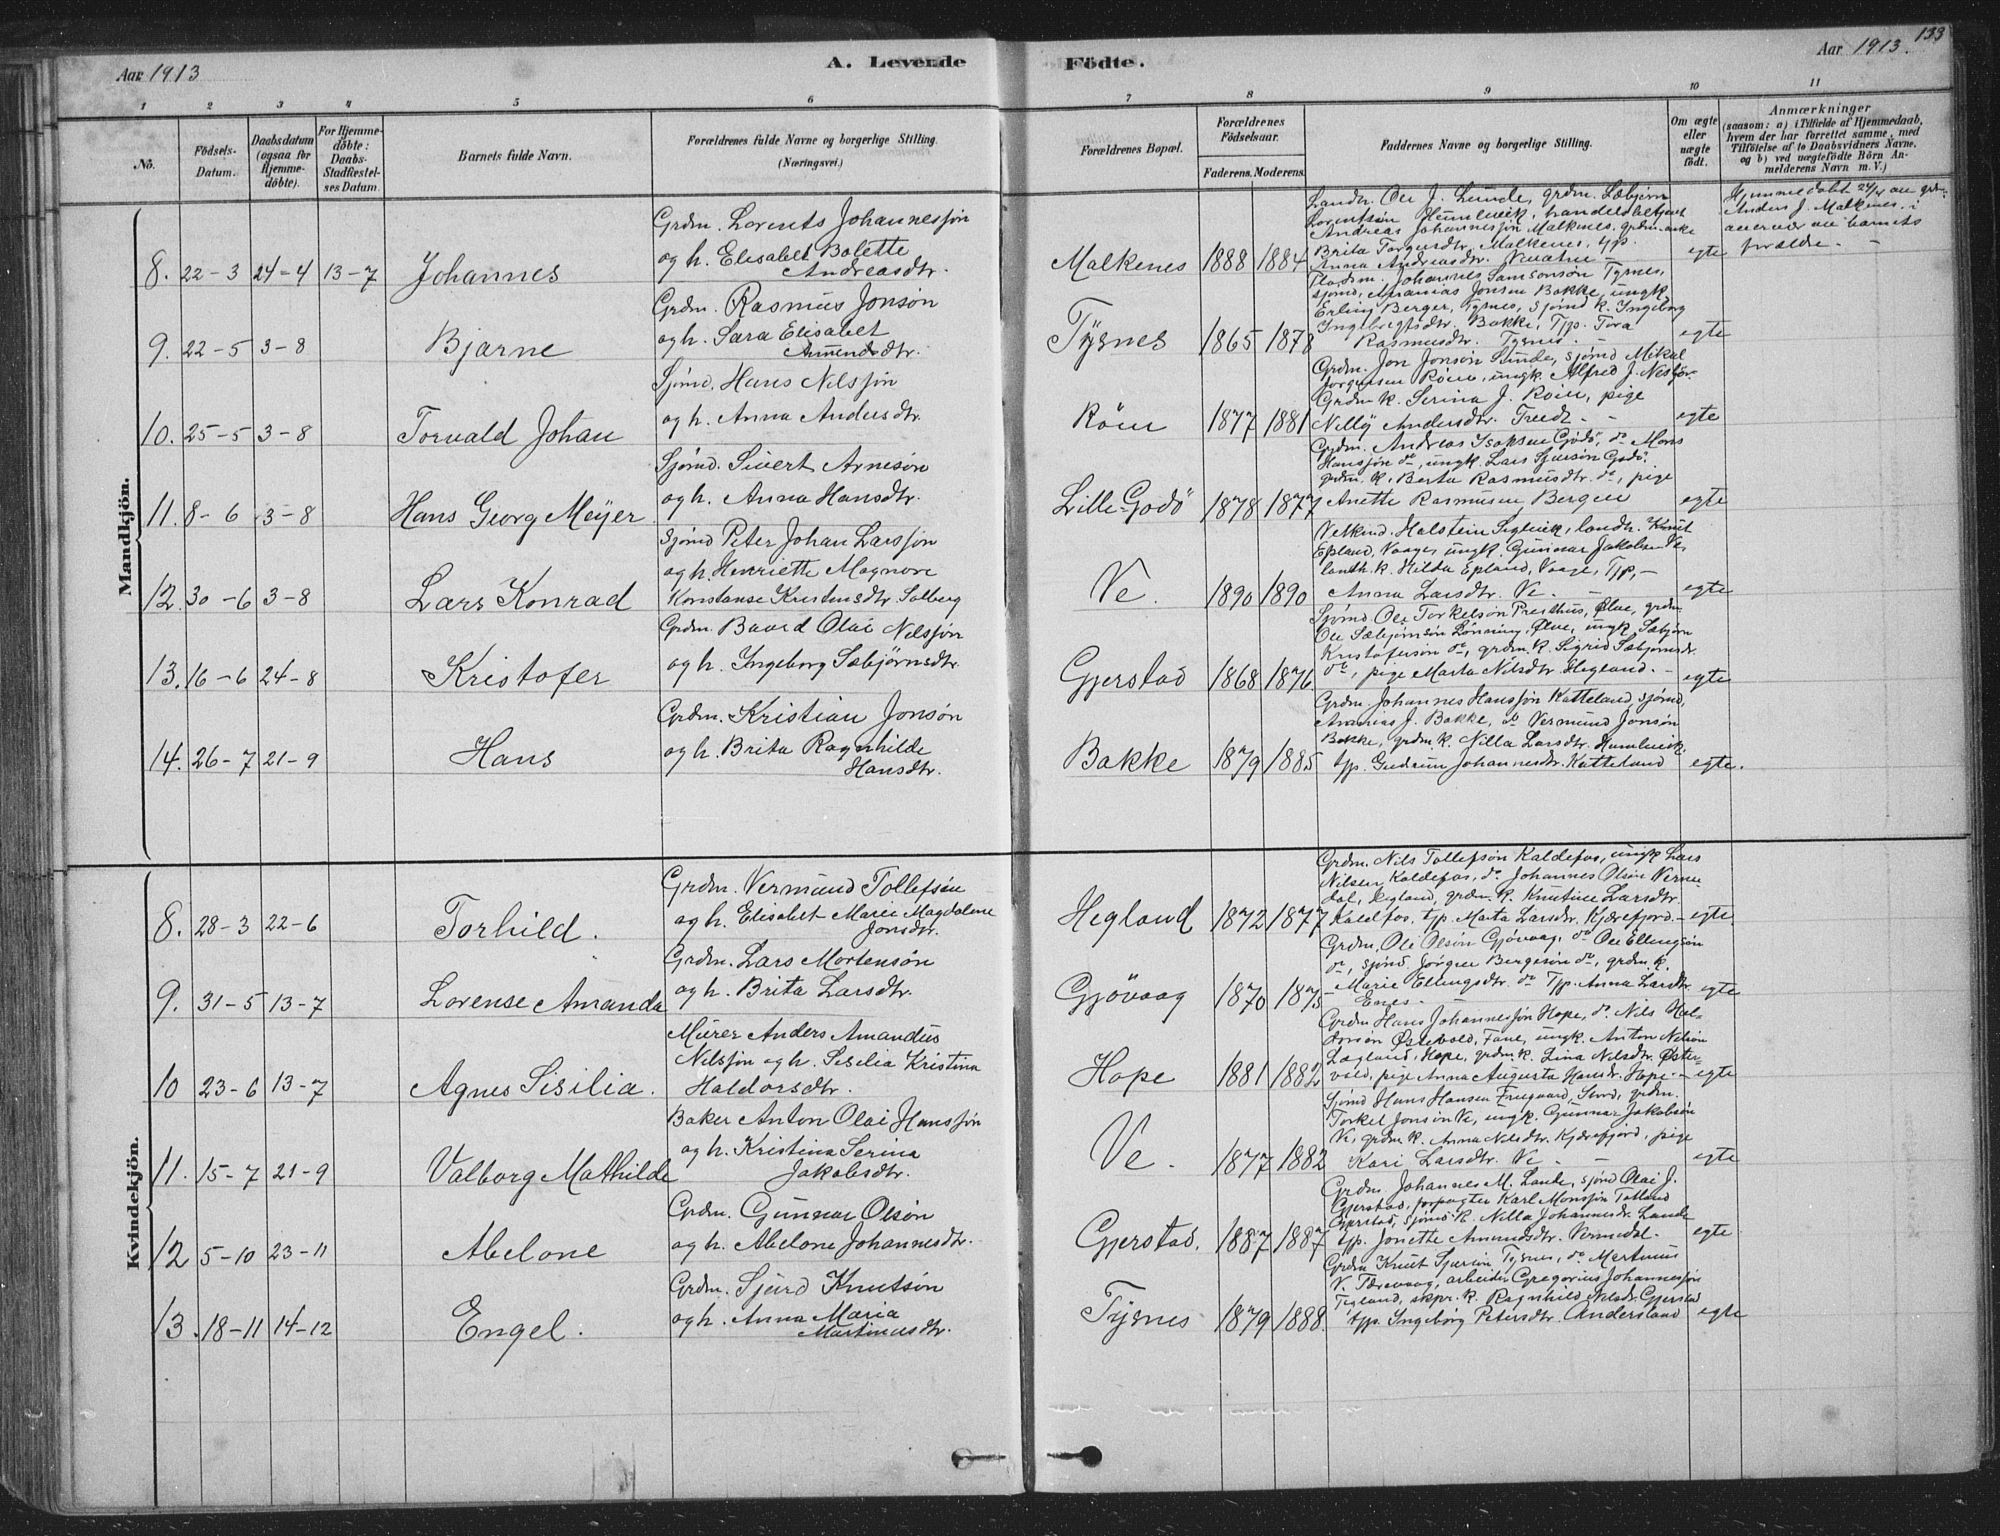 Aar 1913
A. Levende
Födte.
Aar 1913.
133
1 2 3 4 5 6 7 8 9 10 11
No.
Födsels-Datum.
Daabsdatum (ogsaa for Hjemme-döbte).
For Hjemme-döbte: Daabs-Stadfæstel-ses Datum.
Barnets fulde Navn.
Forældrenes fulde Navne og borgerlige Stilling.
(Næringsvei.)
Forældrenes Bopæl.
Forældrenes Födselsaar.
Faderens. Moderens.
Faddernes Navne og borgerlige Stilling.
Om ægte eller uægte födt.
Anmærkninger
(saasom: a) i Tilfælde af Hjemmedaab,
hvem der har forrettet samme, med
Tilföielse af to Daabsvidners Navne,
og b) ved uægtefödte Börn An-
melderens Navn m. V.)
Mandkjön.
8. 22-3 24-4 13-7 Johannes
Grdm. Lorents Johannesson
og h. Elisabet Bolette
Andreasdtr.
Malkenes 1888 1884
Landh. Ole J. Lunde, grdm. Sæbjörn
Lorentsön Humlevik, handelsbetjent
Andreas Johannesson Malkenes, grdm. enke
Brita Torgersdtr. Malkenes, tjp.
Anna Andreasdtr.
egte
Hjemmedöbt 24/4 av grdm.
Anders J. Malkenes i
nærvær av barnets
forældre.
9. 22-5 3-8 Bjarne
Grdm. Rasmus Jonsön
og h. Sara Elisabet
Amundsdtr.
Tysnes 1865 1878
Pladsm. Johannes Samsonsön Tysnes,
sjömd. Ananias Jonsen Bakke, ungk.
Erling Berger, Tysnes, sjömd. k. Ingeborg
Ingebregtsdtr. Bakke, Tjp. Tora
Rasmusdtr. Tysnes.
egte
10. 25-5 3-8 Torvald Johan
Sjömd. Hans Nilsson
og h. Anna Andersdtr.
Röen 1877 1881
Grdm. Jon Jonsön Lunde, sjömd Mikal
Jörgensen Röen, ungk. Alfred J.
Grdm. k. Serina J. Röen, pige
Nelly Andersdtr.
egte
11. 8-6 3-8 Hans Georg Meyer
Sjömd. Sivert Arnesön
og h. Anna Hansdtr.
Lille Godö 1878 1877
Grdm. Andreas Isaksen Godö, do Mons
Hansson do, ungk. Lars Sjursön Godö.
grdm. k. Berta Rasmusdtr. do, pige
Anette Rasmusen Bergen
egte
12. 30-6 3-8 Lars Konrad
Sjömd Peter Johan Larsson
og h. Henriette Magnore
Konstanse Kristensdtr. Solberg
Ve. 1890 1890
Holstein landh. Knut
Epland, Vaage, ungk. Gunnar Jakobsen Ve,
landh. k. Hilda Epland, Vaage, Tjp.
Anna Larsdtr. Ve.
egte
13. 16-6 24-8 Kristofer
Grdm. Baard Olai Nilsson
og h. Ingeborg Sæbjörnsdtr.
Gjerstad 1868 1876
Sjömd Ole Torkelsön Presthus, Ölve, grdm.
Ole Sæbjörnsön Lönning, Ölve, ungk. Sæbjörn
Kristofersön do, grdm. k. Sigrid Sæbjörnsdr.
do, pige Marta Nilsdtr. Hegland.
egte
14. 26-7 21-9 Hans
Grdm. Kristian Jonsön
og h. Brita Ragnhilde
Hansdtr.
Bakke 1879 1885
Grdm. Johannes Hansson Katteland, sjömd.
Ananias J. Bakke, do Vermund Jonsön
Bakke, grdm. k. Nilla Larsdtr. Humlevik.
tjp. Gudrun Johannesdtr. Katteland
egte.
Kvindekjön.
8. 28-3 22-6 Torhild.
Grdm. Vermund Tollefsön
og h. Elisabet Marie Magdalene
Jonsdtr.
Hegland 1872 1877
Grdm. Nils Tollefsön Kaldefos, ungk Lars
Nilsen Kaldefos, do Johannes Olsön Verme-
dal, Hegland, grdm. k. Knutine Larsdtr.
Kaldefos, tjp. Marta Larsdtr. Kjærefjord.
egte.
9. 31-5 13-7 Lorense Amanda
Grdm. Lars Mortensön
og h. Brita Larsdtr.
Gjövaag 1870 1875
Grdm. Ole Olsön Gjövaag, do Ole Ellingsön
do, sjömd. Jörgen Bergesön do, grdm. k.
Marie Ellingsdtr. do Tjp. Anna Larsdtr.
Enes.
egte
10 23-6 13-7 Agnes Sisilia.
Murer Anders Amandus
Nilsson og h. Sisilia Kristina
Haldorsdtr
Hope 1881 1882
Grdm Hans Johannesson Hope, do Nils Hal-
dorsön Östevold, Fane, ungk. Anton Nilsön
Lægland, Hope, grdm. k. Lina Nilsdtr. Öster-
vold, pige Anna Augusta Hansdr. Hope.
egte
11. 15-7 21-9 Valborg Mathilde
Baker Anton Olai Hansson
og h. Kristina Serina
Jakobsdtr.
Ve. 1877 1882
Sjömd Hans Hansen grdm.
Torkel Jonsön Ve, ungk. Gunnar Jakobsön
Ve, grdm. k. Anna Nilsdtr. Kjærefjord, pige
Kari Larsdtr. Ve
egte
12 5-10 23-11 Abelone
Grdm. Gunnar Olsön
og h. Abelone Johannesdtr.
Gjerstad. 1887 1887
Grdm. Johannes M. Lande, sjömd Olai J.
Gjerstad, forpagter Karl Monsson Totland
Gjerstad, sjömd. k. Nilla Johannesdr. Lande
tjp. Jonette Amundsdtr. Vermedal.
egte
13. 18-11 14-12 Engel.
Grdm. Sjurd Knutsön
og h. Anna Maria
Martinusdtr.
Tysnes 1879 1888.
Grdm Knut Sjursön Tysnes, do Martinus
V. Tærevaag, arbeider Gregorius Johannesson
Tigland, skpr. k. Ragnhild Nilsdr. Gjerstad
tjp. Ingeborg Petersdtr. Andersland
egte